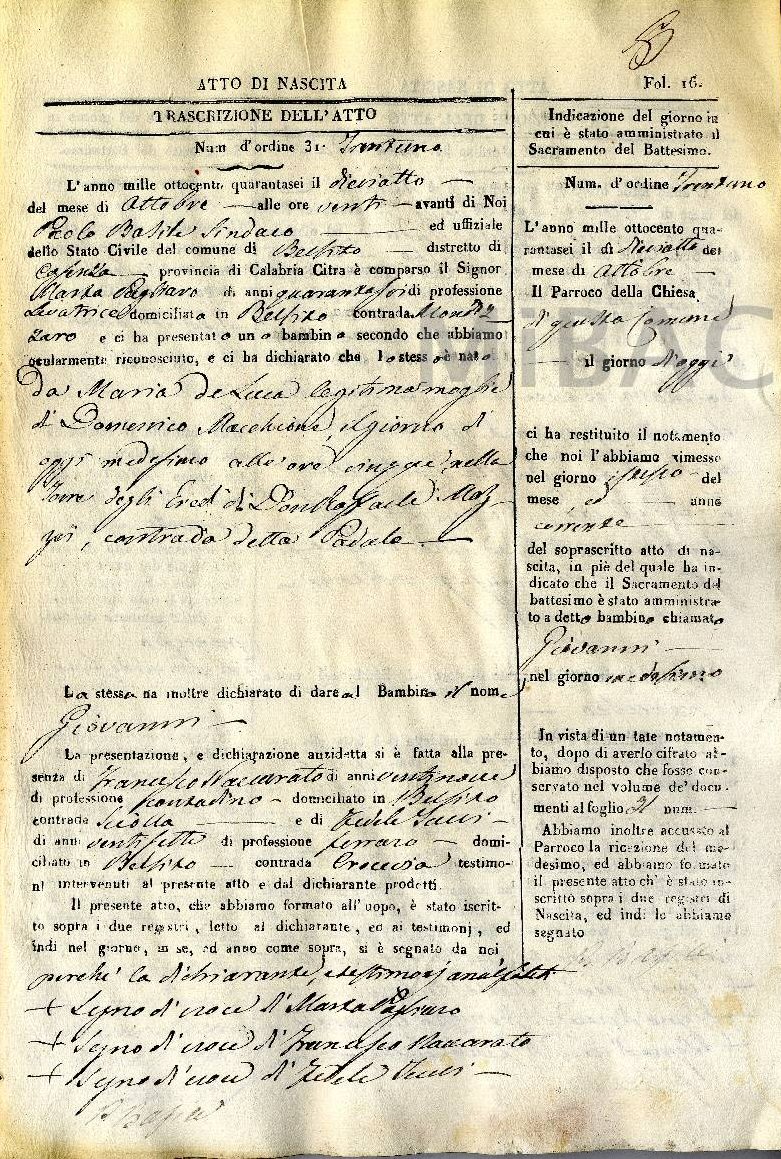 ATTO DI NASCITA
Fol. 16.
TRASCRIZIONE DELL'ATTO
Num d'ordine 31. Trentuno
L'anno mille ottocento quarantasei il dieciotto
del mese di Ottobre alle ore venti avanti di Noi
Paolo Basile Sindaco ed uffiziale
dello Stato Civile del comune di Belsito distretto di
Cosenza provincia di Calabria Citra è comparso il Signor
Marta Pagliaro di anni quarantasei di professione
Levatrice domiciliata in Belsito contrada
e ci ha presentato uno bambino secondo che abbiamo
ocularmente riconosciuto, e ci ha dichiarato che lo stesso è nato
Da Maria de Luca legitima moglie
di Domenico Macchione, il giorno di
oggi medesimo alle ore cinque nella
Torre degli Eredi di Don Raffaele Maz-
zei, contrada detta
La stessa ha inoltre dichiarato di dare al Bambino il nome
Giovanni
La presentazione, e dichiarazione anzidetta si è fatta alla pre-
senza di Francesco Naccarato di anni ventinove
di professione contadino domiciliato in Belsito
contrada e di Fedele
di anni ventisette di professione ferraro domi-
ciliato in Belsito contrada Crocevia testimo-
ni intervenuti al presente atto e dal dichiarante prodotti.
Il presente atto, che abbiamo formato all'uopo, è stato iscrit-
to sopra i due registri, letto al dichiarante, ed ai testimonj, ed
indi nel giorno, mese, ed anno come sopra, si è segnato da noi
perché la dichiarante, e testimonj analfabeti
+ Segno di croce di Marta Pagliaro
+ Segno di croce di Francesco Naccarato
+ Segno di croce di Fedele
Indicazione del giorno in
cui è stato amministrato il
Sacramento del Battesimo.
Num. d'ordine Trentuno
L'anno mille ottocento qua-
rantasei il dì Dieciotto del
mese di Ottobre
Il Parroco della Chiesa
di questo Comune
il giorno d'oggi
ci ha restituito il notamento
che noi l'abbiamo rimesso
nel giorno istesso del
mese ed anno
corrente
del soprascritto atto di na-
scita, in piè del quale ha in-
dicato che il Sacramento del
battesimo è stato amministra-
to a detto bambino chiamato
Giovanni
nel giorno medesimo
In vista di un tale notamen-
to, dopo di averlo cifrato ab-
biamo disposto che fosse con-
servato nel volume de' docu-
menti al foglio 31 num.
Abbiamo inoltre accusato al
Parroco la ricezione del me-
desimo, ed abbiamo formato
il presente atto ch'è stato in-
scritto sopra i due registri di
Nascita, ed indi lo abbiamo
segnato
MiBAC